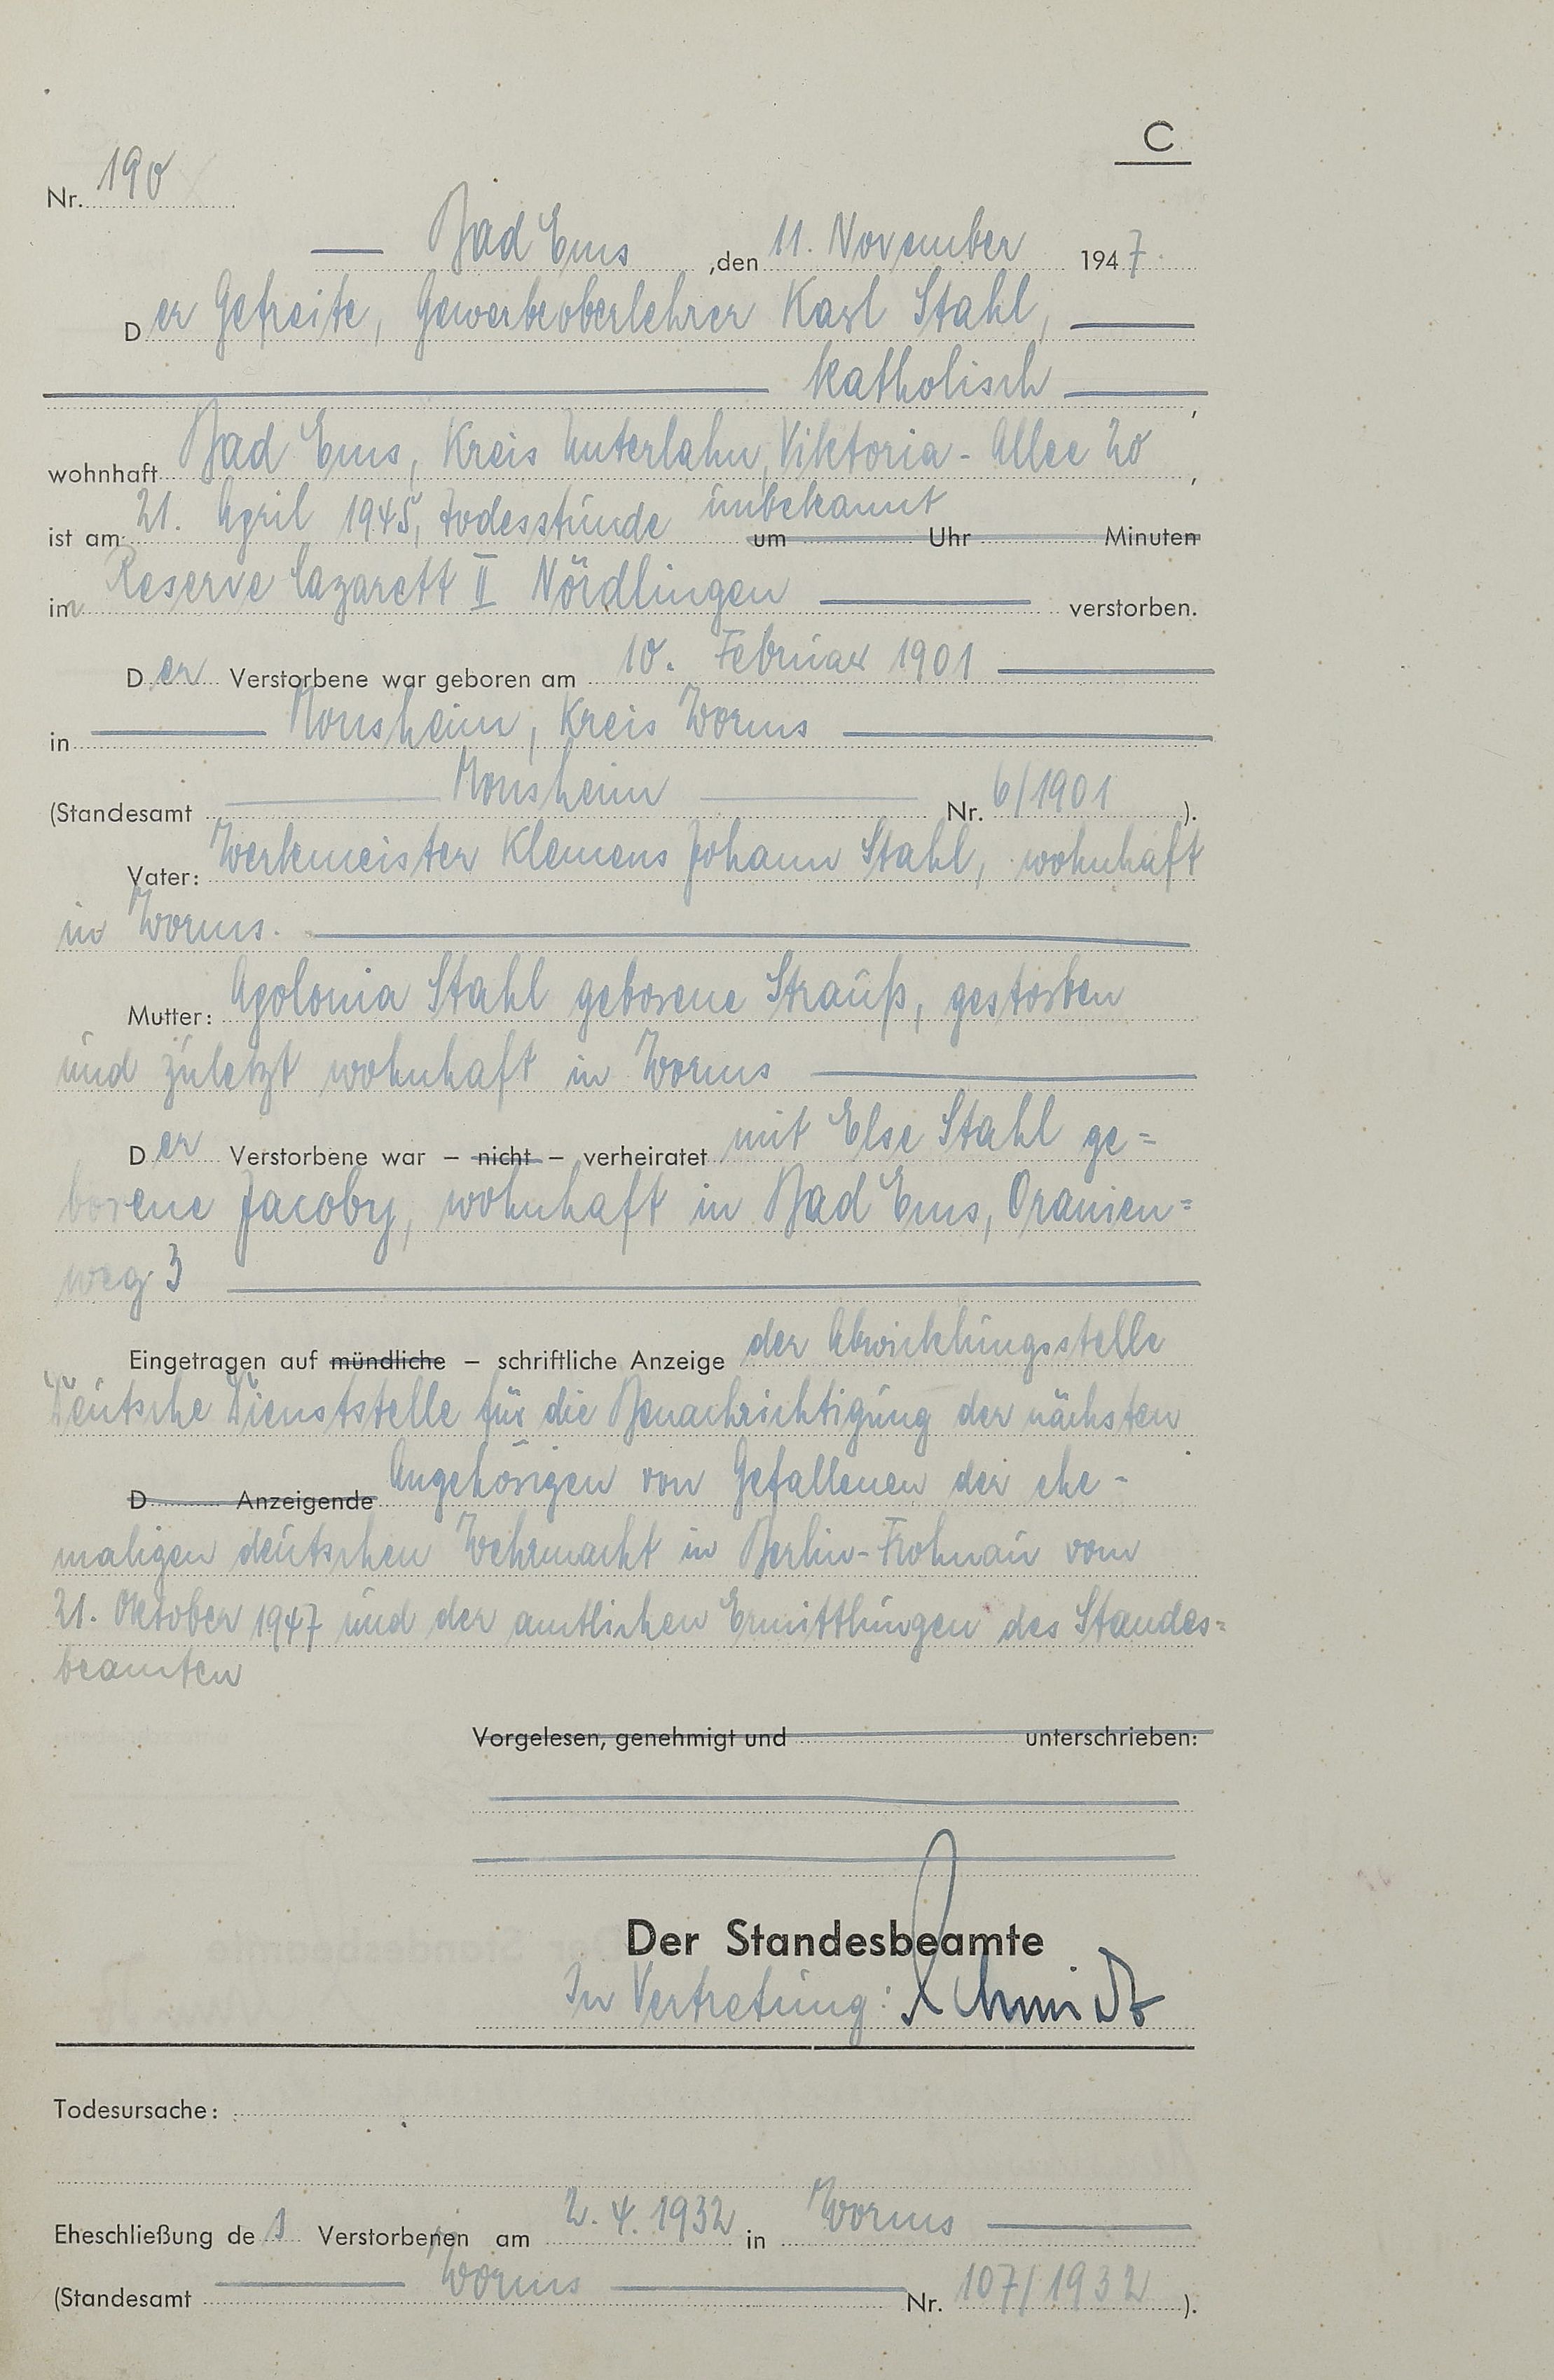 C
Nr. 190
Bad Ems, den 11. November 1947
Der Gefreite, Gewerbeoberlehrer Karl Stahl,
katholisch,
wohnhaft Bad Ems, Kreis Unterlahn, Viktoria-Allee 20,
ist am 21. April 1945, Todesstunde unbekannt um Uhr Minuten
im Reserve Lazarett II Nördlingen verstorben.
Der Verstorbene war geboren am 10. Februar 1901
in Monsheim, Kreis Worms
(Standesamt Monsheim Nr. 6/1901).
Vater: Werkmeister Klemens Johann Stahl, wohnhaft
in Worms.
Mutter: Apolonia Stahl geborene Strauß, gestorben
und zuletzt wohnhaft in Worms
Der Verstorbene war – nicht – verheiratet mit Else Stahl ge=
borene Jacoby, wohnhaft in Bad Ems, Oranien=
weg 3
Eingetragen auf mündliche – schriftliche Anzeige der Abwicklungsstelle
Deutsche Dienststelle für die Benachrichtigung der nächsten
D Anzeigende Angehörigen von Gefallenen der ehe-
maligen deutschen Wehrmacht in Berlin-Frohnau vom
21. Oktober 1947 und der amtlichen Ermittlungen des Standes=
beamten
Vorgelesen, genehmigt und unterschrieben:
Der Standesbeamte
In Vertretung: Schmidt
Todesursache:
Eheschließung des Verstorbenen am 2.4.1932 in Worms
(Standesamt Worms Nr. 107/1932).